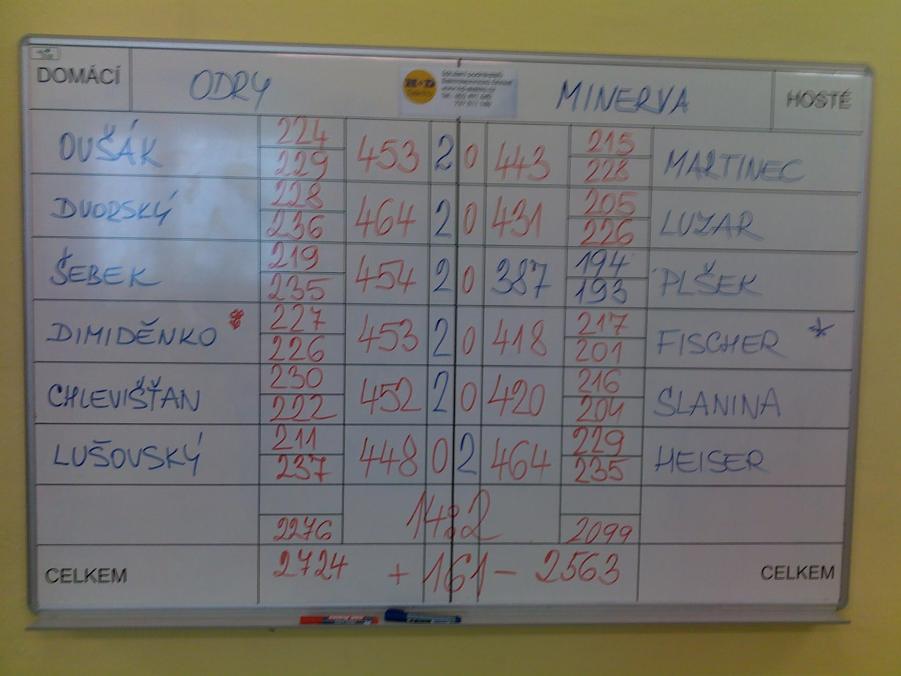 DOMÁCÍ ODRY H+D MINERVA HOSTÉ
DUŠÁK 224 229 453 2 0 443 215 228 MARTINEC
DVORSKÝ 228 236 464 2 0 431 205 226 LUZAR
ŠEBEK 219 235 454 2 0 387 194 193 PLŠEK
DIMIDĚNKO * 227 226 453 2 0 418 217 201 FISCHER *
CHLEVIŠŤAN 230 222 452 2 0 420 216 204 SLANINA
LUŠOVSKÝ 211 237 448 0 2 464 229 235 HEISER
2276 14:2 2099
CELKEM 2724 + 161 - 2563 CELKEM